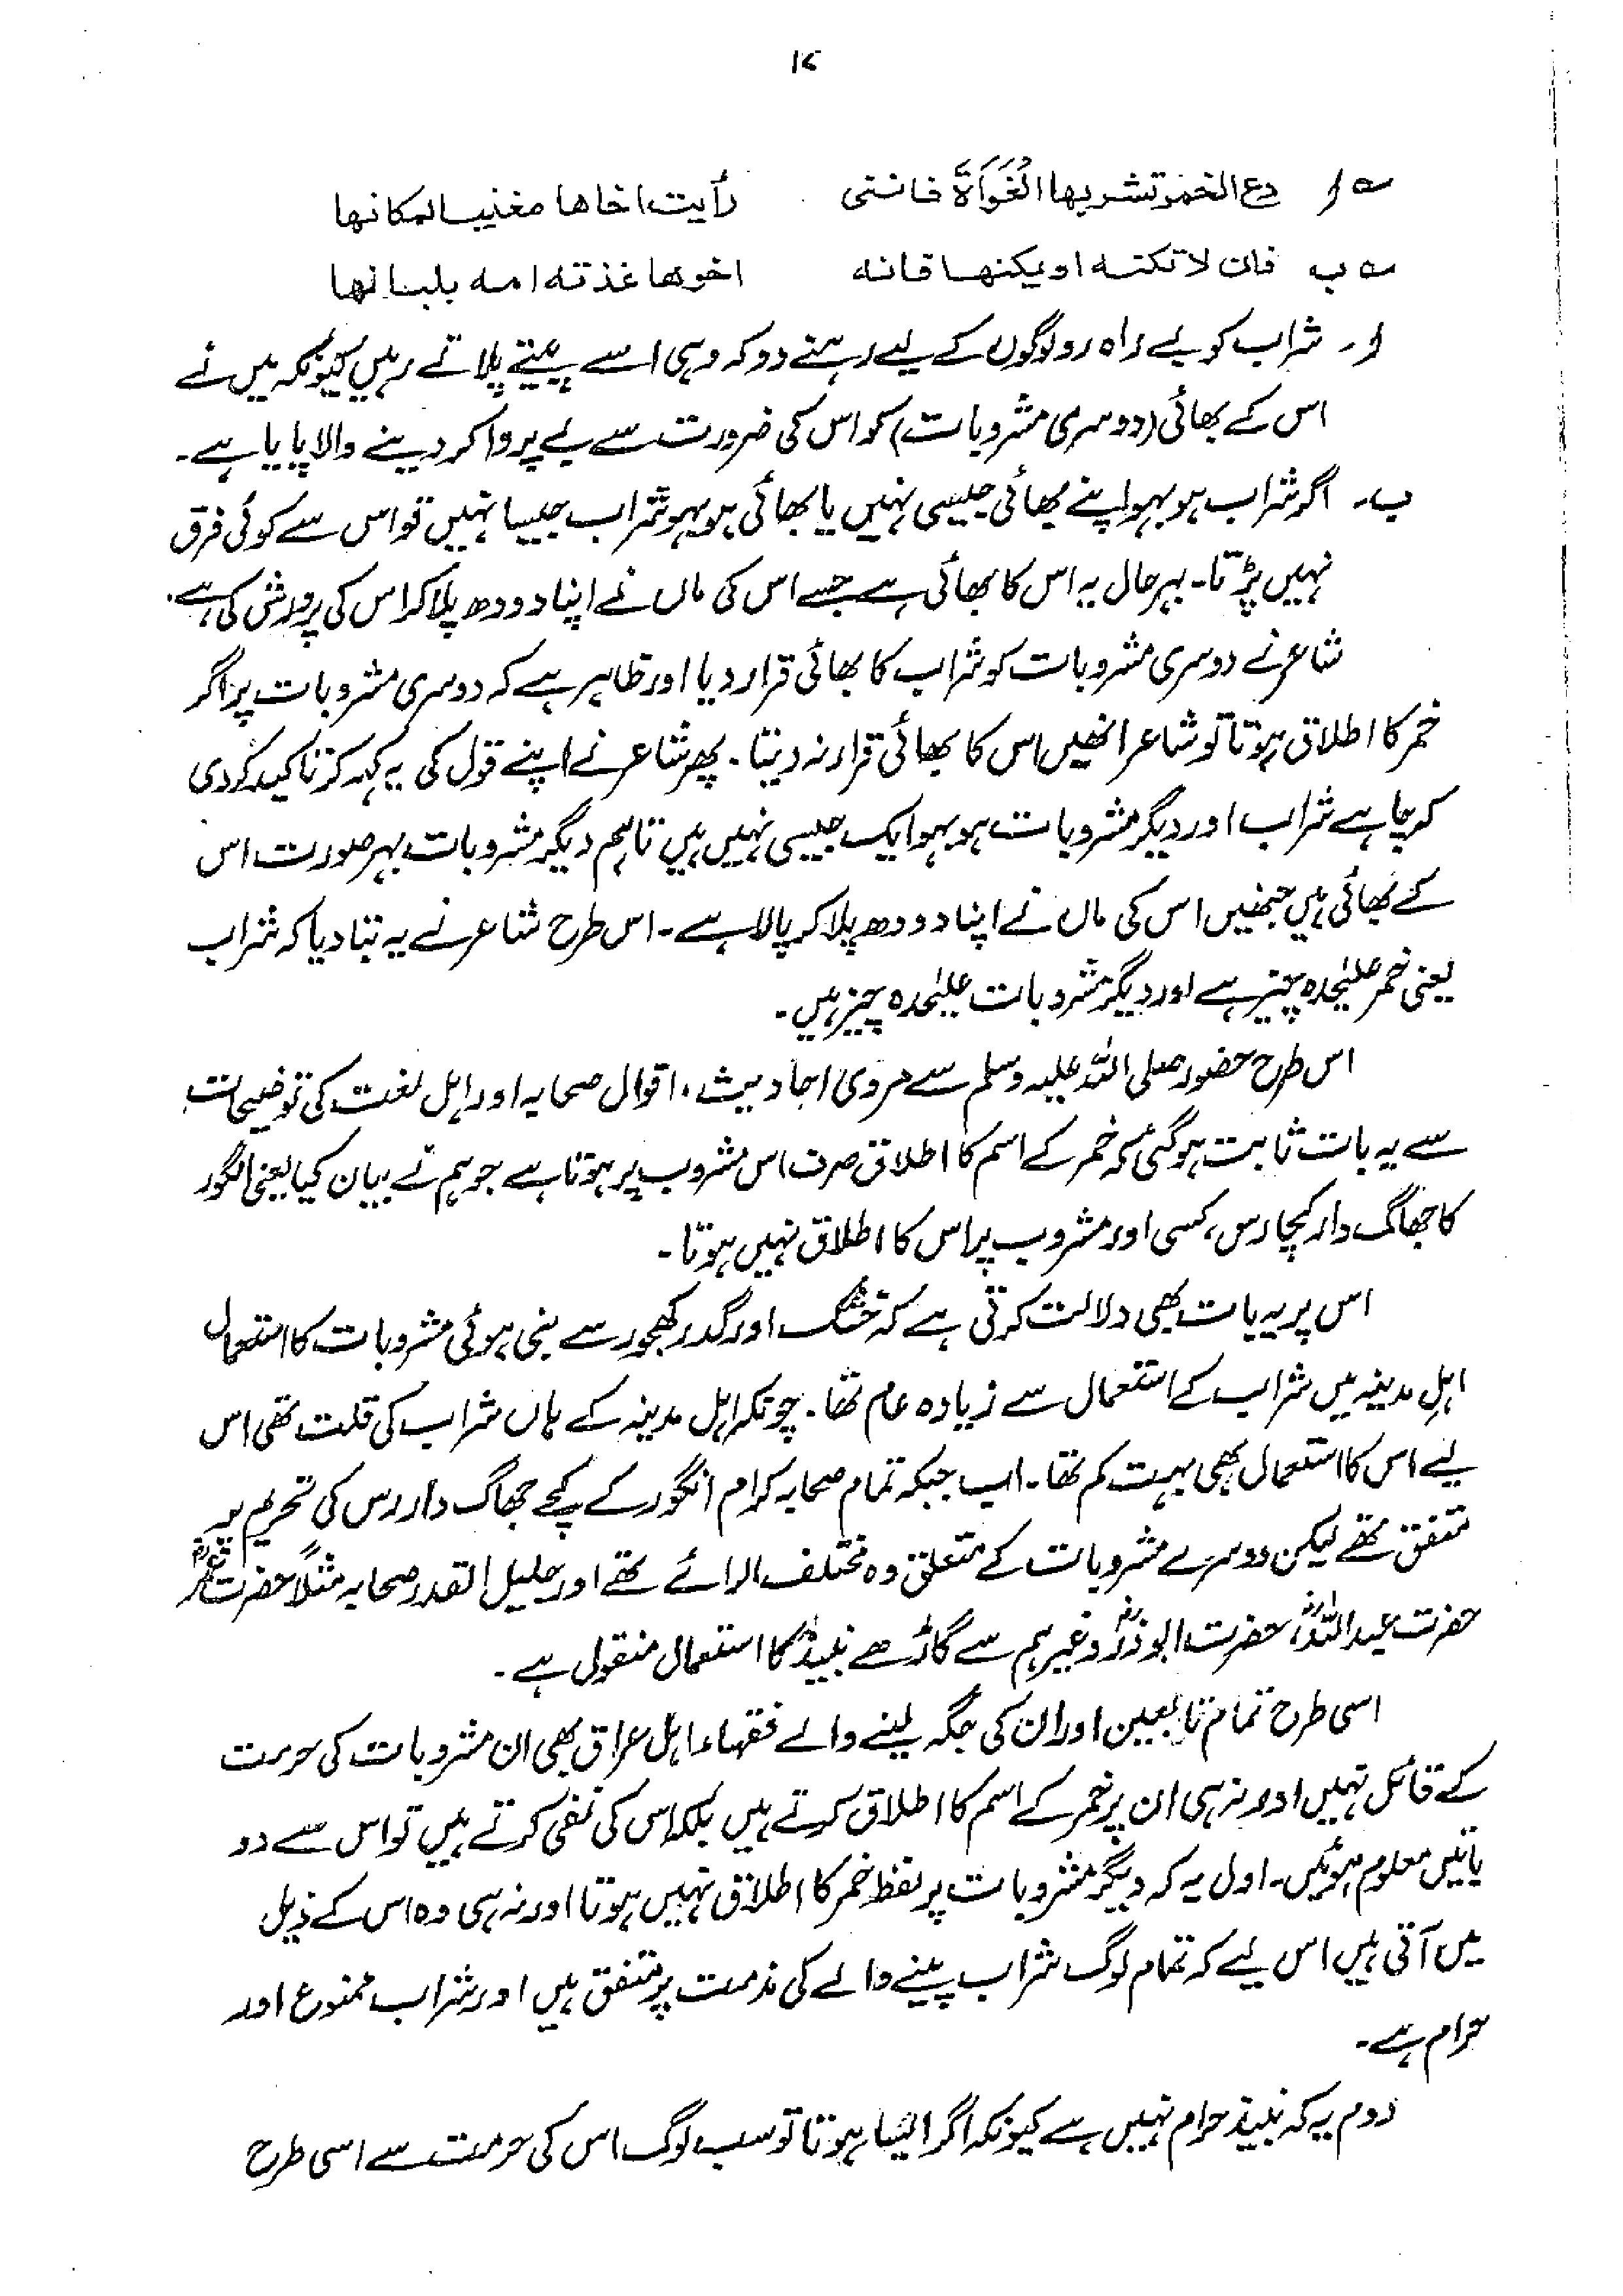 ۱۷
؎ ا دع الخمر تشربها الغُوَاَةُ فاننی رأیت اخاها مغنیا لمکانها
؎ ب فان لا تکنه او یکنها فانه اخوها غذته امه بلبانها
ا۔ شراب کو بے راہ رو لوگوں کے لیے رہنے دو کہ وہی اسے پیتے پلاتے رہیں کیونکہ میں نے
اس کے بھائی (دوسری مشروبات) کو اس کی ضرورت سے بے پروا کر دینے والا پایا ہے۔
ب۔ اگر شراب ہو بہو اپنے بھائی جیسی نہیں یا بھائی ہو بہو شراب جیسا نہیں تو اس سے کوئی فرق
نہیں پڑتا۔ بہرحال یہ اس کا بھائی ہے جسے اس کی ماں نے اپنا دودھ پلا کر اس کی پرورش کی ہے۔
شاعر نے دوسری مشروبات کو شراب کا بھائی قرار دیا اور ظاہر ہے کہ دوسری مشروبات پر اگر
خمر کا اطلاق ہوتا تو شاعر انھیں اس کا بھائی قرار نہ دیتا۔ پھر شاعر نے اپنے قول کی یہ کہہ کر تاکید کر دی
کہ چاہے شراب اور دیگر مشروبات ہو بہو ایک جیسی نہیں ہیں تاہم دیگر مشروبات بہر صورت اس
کے بھائی ہیں جنھیں اس کی ماں نے اپنا دودھ پلا کر پالا ہے۔ اس طرح شاعر نے یہ بتا دیا کہ شراب
یعنی خمر علیٰحدہ چیز ہے اور دیگر مشروبات علیٰحدہ چیز ہیں۔
اس طرح حضور صلی اللہ علیہ وسلم سے مروی احادیث، اقوال صحابہ اور اہل لغت کی توضیحات
سے یہ بات ثابت ہو گئی کہ خمر کے اسم کا اطلاق صرف اس مشروب پر ہوتا ہے جو ہم نے بیان کیا یعنی انگور
کا جھاگ دار کچا رس، کسی اور مشروب پر اس کا اطلاق نہیں ہوتا۔
اس پر یہ بات بھی دلالت کرتی ہے کہ خشک اور گدر کھجور سے بنی ہوئی مشروبات کا استعمال
اہلِ مدینہ میں شراب کے استعمال سے زیادہ عام تھا۔ چونکہ اہل مدینہ کے ہاں شراب کی قلت تھی اس
لیے اس کا استعمال بھی بہت کم تھا۔ اب جبکہ تمام صحابہ کرام انگور کے کچے جھاگ دار رس کی تحریم پر
متفق تھے لیکن دوسرے مشروبات کے متعلق وہ مختلف الرائے تھے اور جلیل القدر صحابہ مثلاً حضرت عمرؓ
حضرت عبداللہؓ، حضرت ابوذرؓ وغیرہم سے گاڑھے نبیذ کا استعمال منقول ہے۔
اسی طرح تمام تابعین اور ان کی جگہ لینے والے فقہاء اہل عراق بھی ان مشروبات کی حرمت
کے قائل نہیں اور نہ ہی ان پر خمر کے اسم کا اطلاق کرتے ہیں بلکہ اس کی نفی کرتے ہیں تو اس سے دو
باتیں معلوم ہوئیں۔ اول یہ کہ دیگر مشروبات پر لفظ خمر کا اطلاق نہیں ہوتا اور نہ ہی وہ اس کے ذیل
میں آتی ہیں اس لیے کہ تمام لوگ شراب پینے والے کی مذمت پر متفق ہیں اور شراب ممنوع اور
حرام ہے۔
دوم یہ کہ نبیذ حرام نہیں ہے کیونکہ اگر ایسا ہوتا تو سب لوگ اس کی حرمت سے اسی طرح